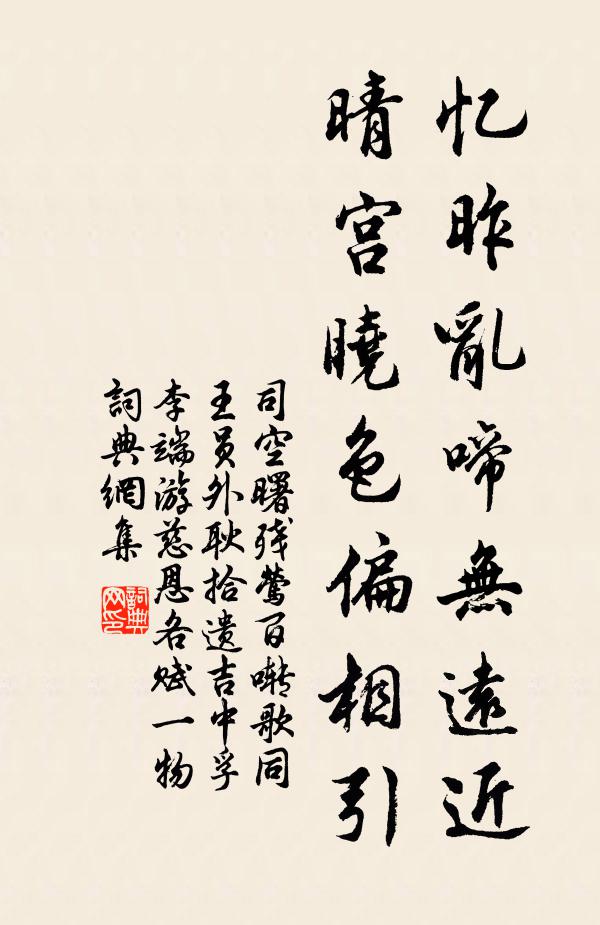 忆昨亂啼無遠近
晴宫曉色偏相引
司空曙残鶯百啭歌同
王员外耿拾遗吉中孚
李端游慈恩各赋一物
詞典網集
詞典
网印